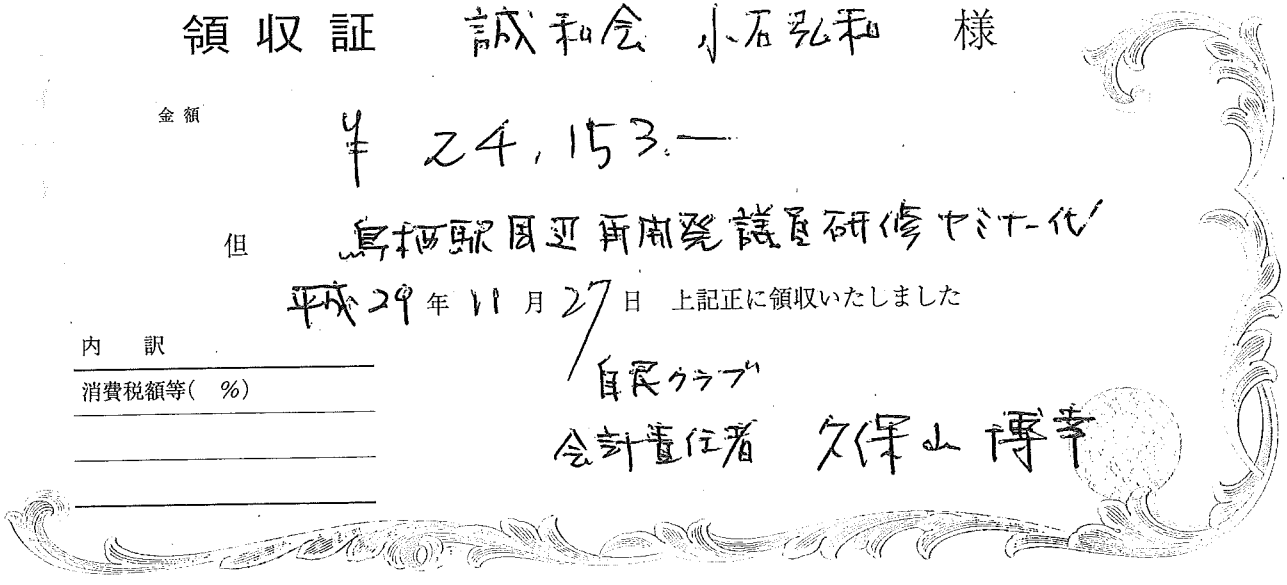 領収証 誠和会 小石弘和 様
金額
¥ 24,153.―
但 鳥栖駅周辺再開発議員研修セミナー代
平成29年11月27日 上記正に領収いたしました
内 訳
消費税額等( %)
自民クラブ
会計責任者 久保山博幸